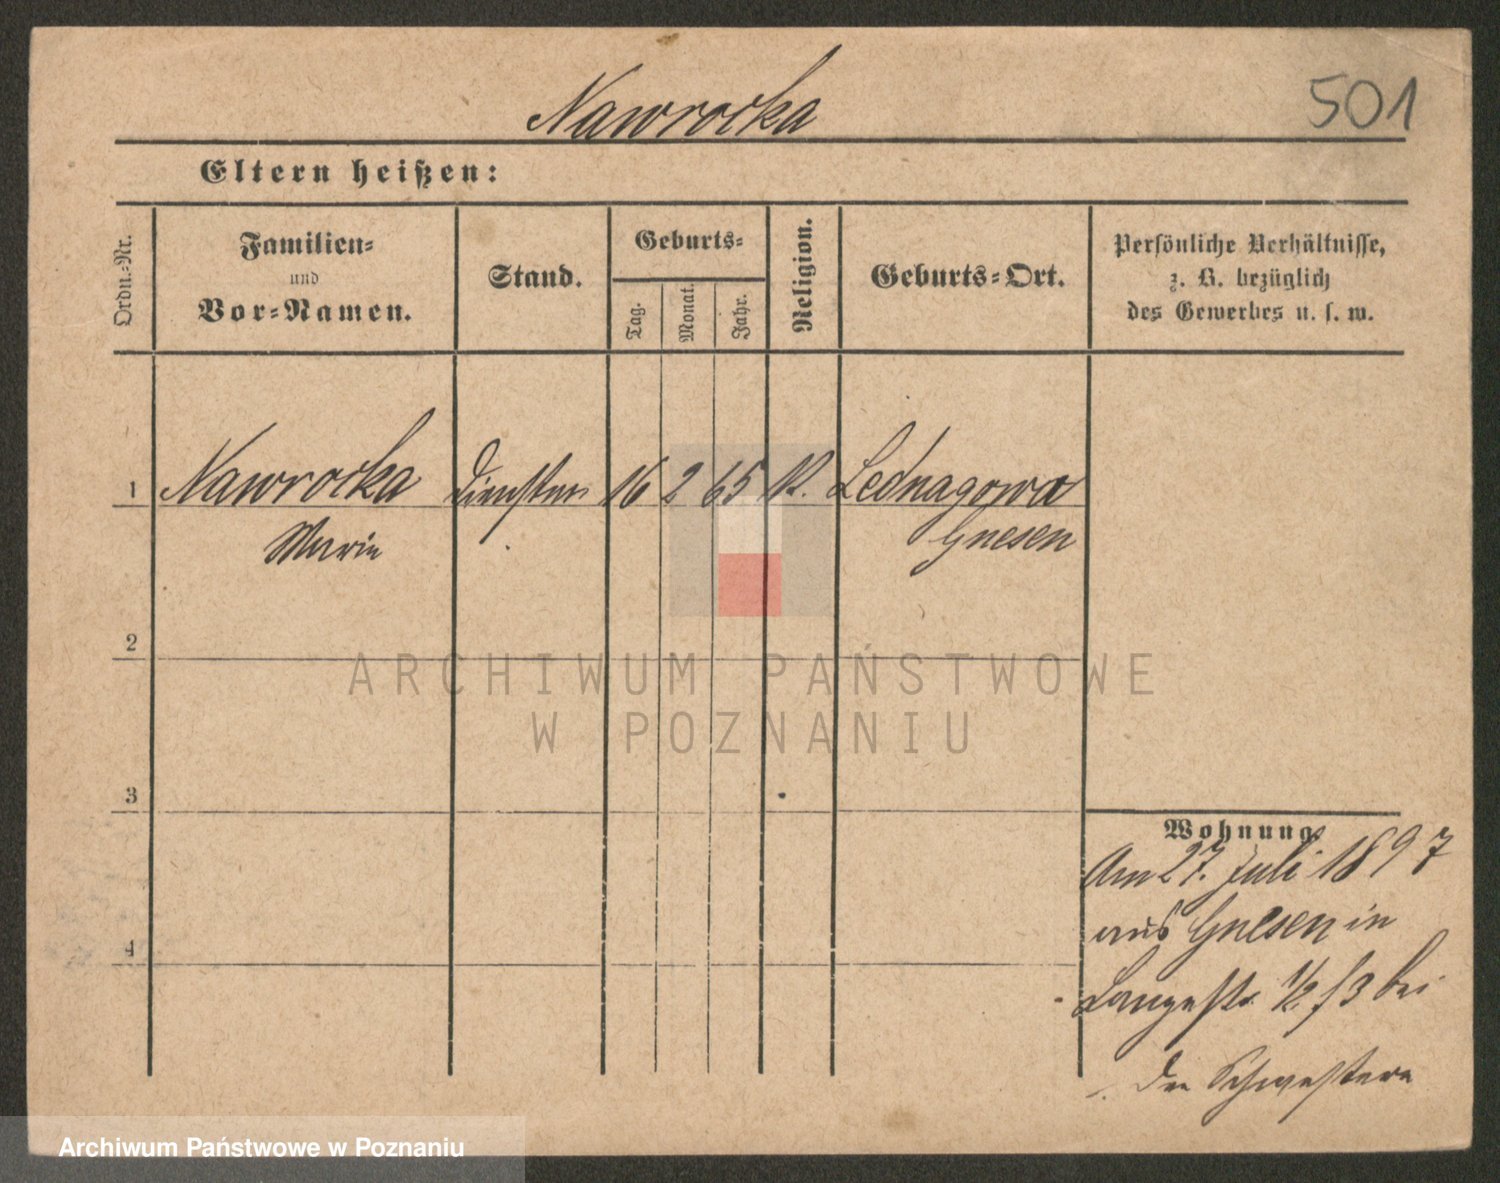 Nawrocka
501
Eltern heißen:
Ordn.-Nr.
Familien-
und
Vor-Namen.
Stand.
Geburts-
Tag.
Monat.
Jahr.
Religion.
Geburts-Ort.
Persönliche Verhältnisse,
z. B. bezüglich
des Gewerbes u. s. w.
1 Nawrocka 16 2 65 K. Lednagowa
Marie Gnesen
2
3
4
Wohnung
Am 27. Juli 1897
aus Gnesen in
Langestr. bei
der Schwester
ARCHIWUM PAŃSTWOWE
W POZNANIU
Archiwum Państwowe w Poznaniu